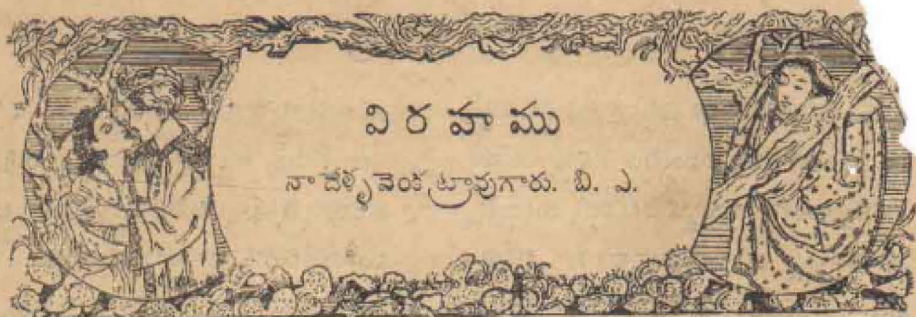 వి ర హ ము
నా దెళ్ళ వెంకట్రావుగారు. బి. ఎ.